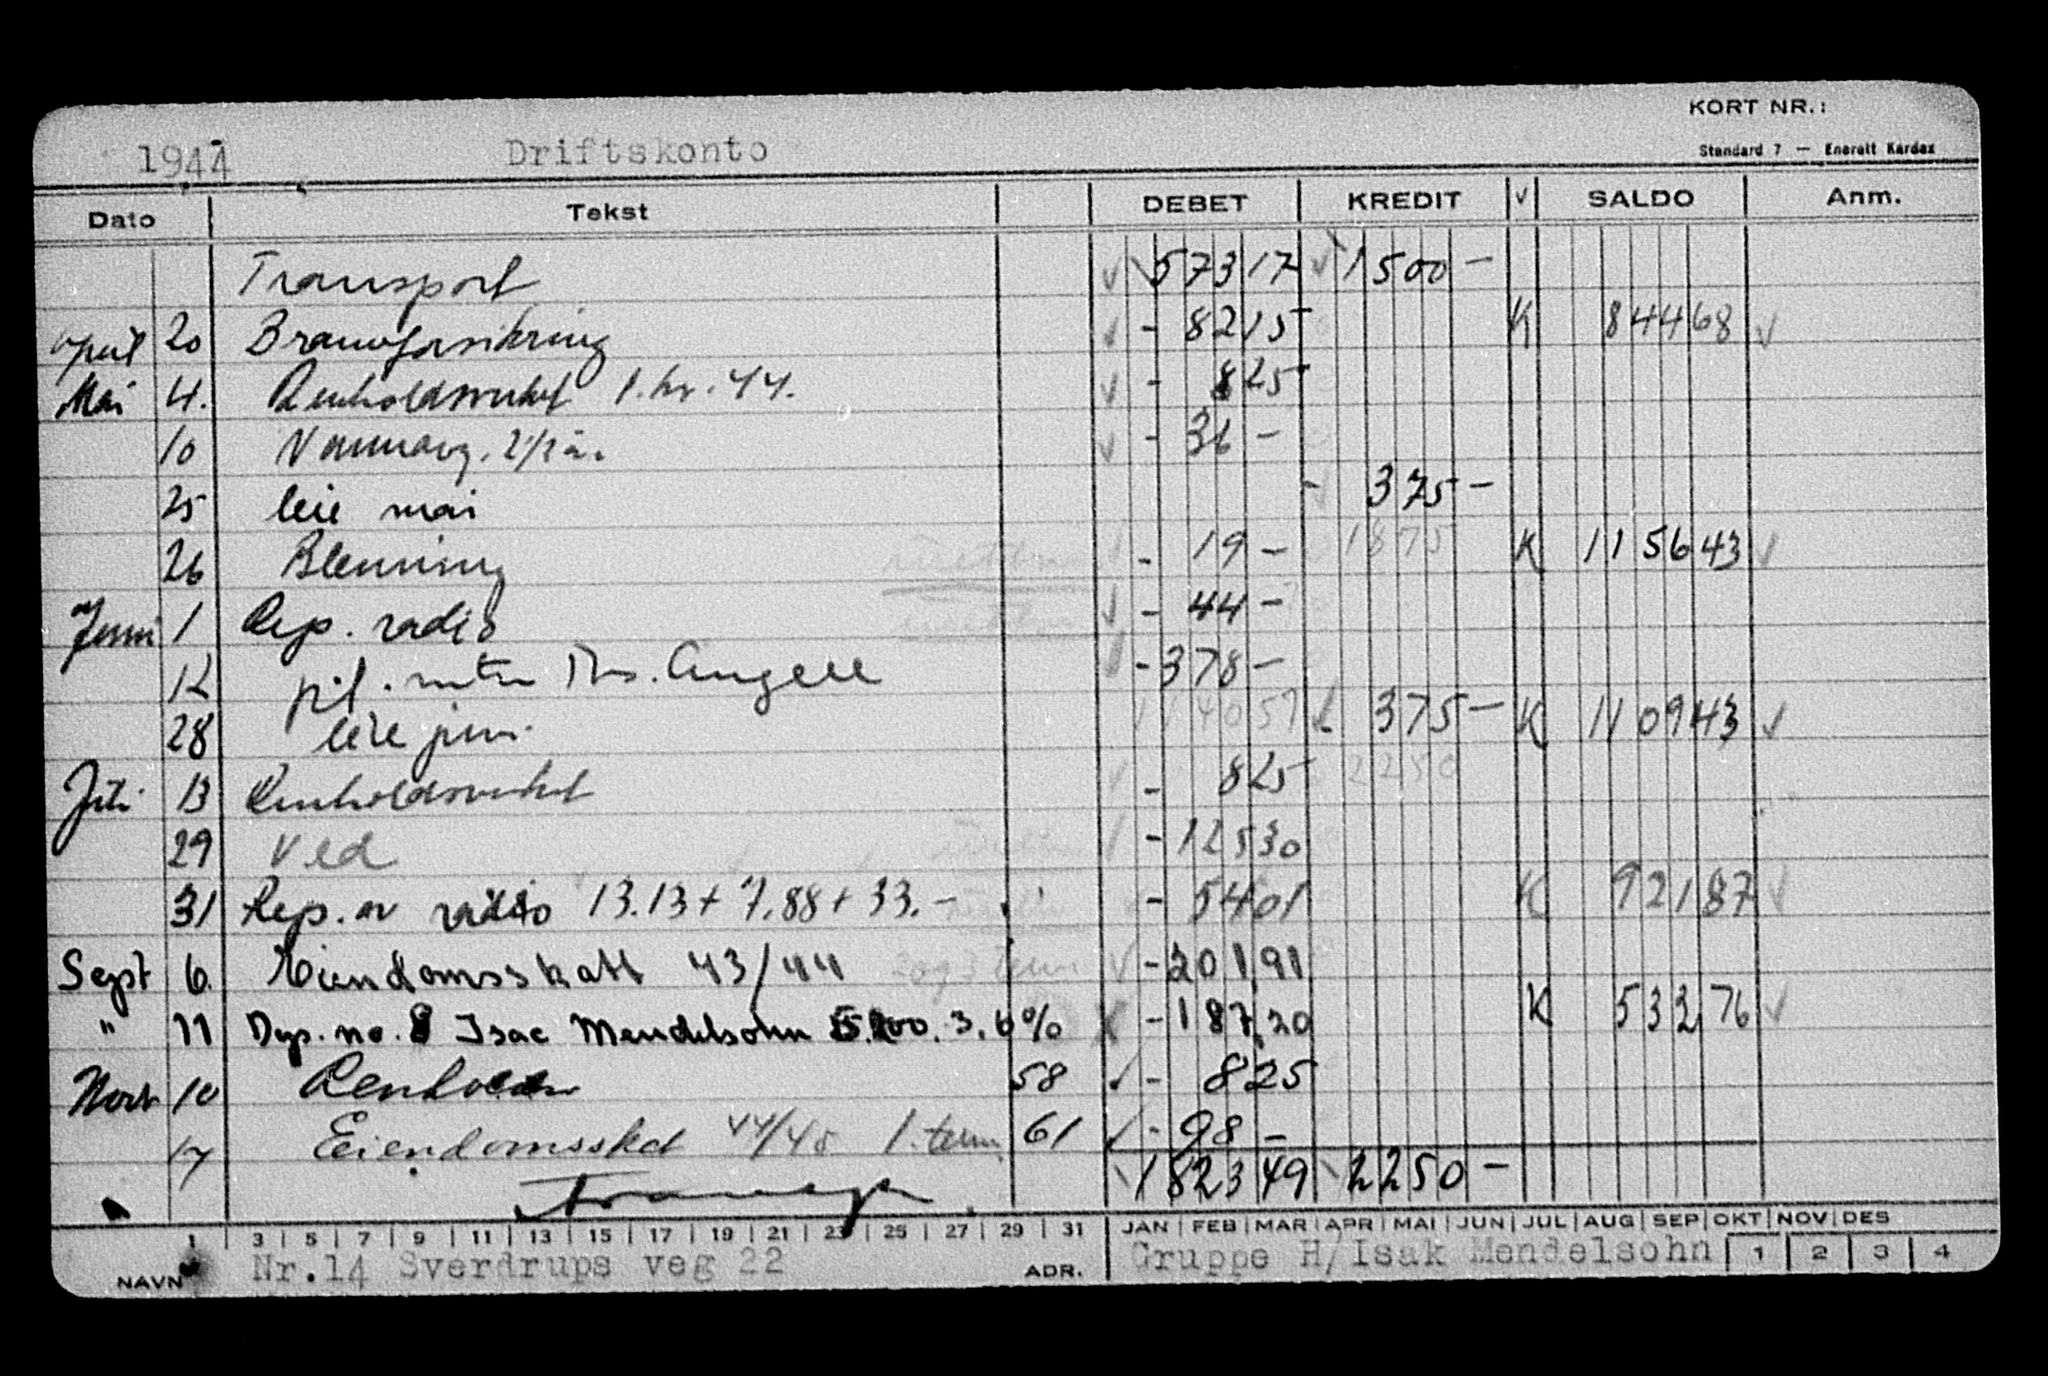 KORT NR.:
1944 Driftskonto Standard 7 — Enerett Kardex
Dato Tekst DEBET KREDIT √ SALDO Anm.
Transport 573 17 1500 -
April 20 Brannforsikring - 82 15 K 844 68
Mai 4. Renholdsverket 1. hv. 44. - 8 25
10 Vannavg. 1/2 år. - 36 -
25 leie mai 375 -
26 - 19 - 1875 K 1156 43
Juni 1 Rep. radio - 44 -
12 Ths. Angell - 378 -
28 leie juni 1140 57 375 - K 1109 43
Juli 13 Renholdsverket - 8 25 2250
29 Ved - 125 30
31 Rep. av radio 13.13 + 7.88 + 33.- - 54 01 K 921 87
Sept 6. Eiendomsskatt 43/44 2 og 3 term - 201 91
" 11 no. 8 Isac Mendelsohn 3.6% - 187 20 K 532 76
Novb 10 Renhold 58 - 8 25
17 Eiendomsskat 44/45 1. term 61 - 98 -
Transp. 1823 49 2250 -
1 3 5 7 9 11 13 15 17 19 21 23 25 27 29 31 JAN FEB MAR APR MAI JUN JUL AUG SEP OKT NOV DES
NAVN Nr.14 Sverdrups veg 22 ADR. Gruppe H/Isak Mendelsohn 1 2 3 4